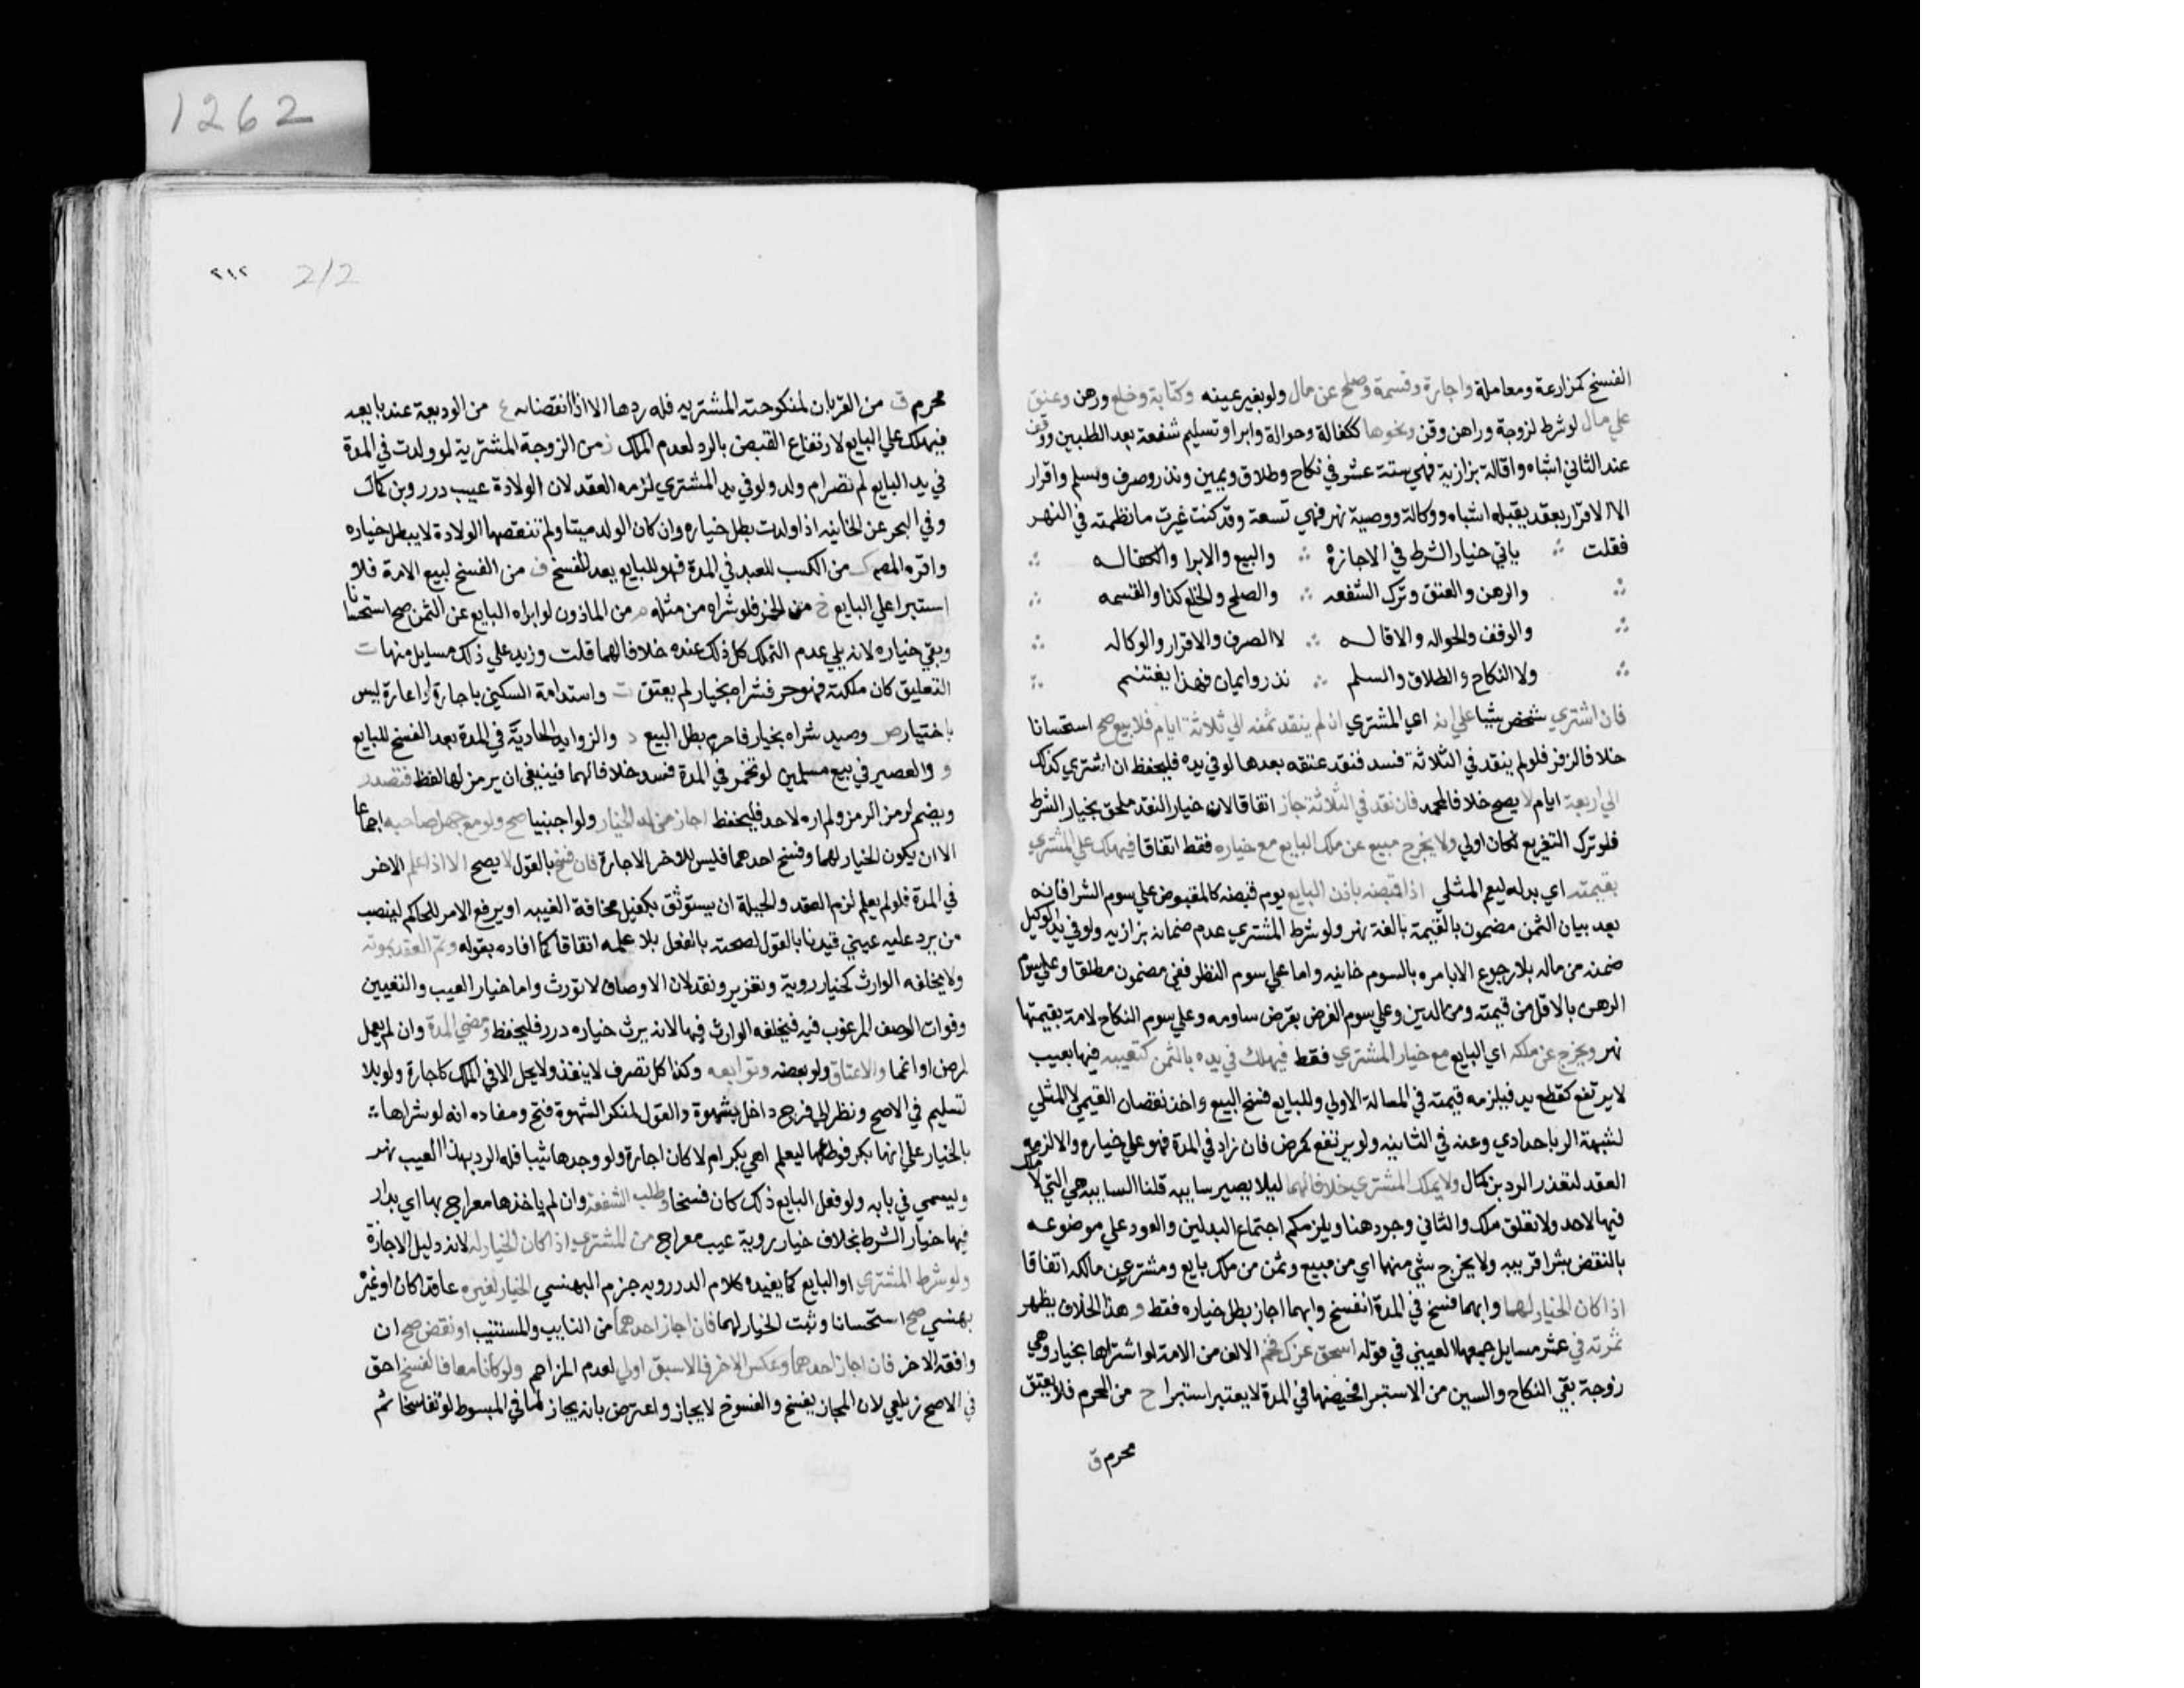 1262
الفسخ كمزارعة ومعاملة واجارة وقسمة وصلح عن مال ولو بغير عينه وكتابة وخلع ورهن وعتق
علي مال لو شرط لزوجة وراهن وقن ونحوها ككفالة وحوالة وابرا وتسليم شفعة بعد الطلبين ووقف
عند الثاني اشباه واقالة بزازية فهي ستة عشر لا في نكاح وطلاق ويمين ونذر وصرف وسلم واقرار
الا الاقرار بعقد يقبله اشباه ووكالة ووصية نهر فهي تسعة وقد كنت غيرت ما نظمته في النهر
فقلت ∴ ياتي خيار الشرط في الاجازة ∴ والبيع والابرا والكفاله ∴
∴ والرهن والعتق وترك الشفعه ∴ والصلح والخلع كذا والقسمه ∴
∴ والوقف والحواله والاقاله ∴ لا الصرف والاقرار والوكاله ∴
∴ ولا النكاح والطلاق والسلم ∴ نذر وايمان فهذا يغتنم ∴
فان اشتري شخص شيا علي انه اي المشتري ان لم ينقد ثمنه الي ثلاثة ايام فلا بيع صح استحسانا
خلافا لزفر فلو لم ينقد في الثلاثة فسد فنفذ عتقه بعدها لو في يده فليحفظ ان اشتري كذلك
الي اربعة ايام لا يصح خلافا لمحمد فان نقد في الثلاثة جاز اتفاقا لان خيار النقد ملحق بخيار الشرط
فلو ترك التفريع لكان اولي ولا يخرج مبيع عن ملك البايع مع خياره فقط اتفاقا فيهلك علي المشتري
بقيمته اي بدله ليعم المثلي اذا قبضه باذن البايع يوم قبضه كالمقبوض علي سوم الشرا فانه
بعد بيان الثمن مضمون بالقيمة بالغة نهر ولو شرط المشتري عدم ضمانه بزازيه ولو في يد الوكيل
ضمنه من ماله بلا رجوع الا بامره بالسوم خانيه واما علي سوم النظر فغير مضمون مطلقا وعلي سوم
الرهن بالاقل من قيمته ومن الدين وعلي سوم القرض بقرض ساومه وعلي سوم النكاح لامة بقيمتها
نهر ويخرج عن ملكه اي البايع مع خيار المشتري فقط فيهلك في يده بالثمن كتعيبه فيها بعيب
لا يرتفع كقطع يد فيلزمه قيمته في المسالة الاولي وللبايع فسخ البيع واخذ نقصان القيمي لا المثلي
لشبهة الربا حدادي وثمنه في الثانيه ولو يرتفع كمرض فان زال في المدة فهو علي خياره والا لزمه
العقد لتعذر الرد بن كمال ولا يملكه المشتري خلافا لهما ليلا يصير سايبه قلنا السايبه هي التي لا ملك
فيها لاحد ولا تعلق ملك والثاني وجود هنا ويلزمكم اجتماع البدلين والعود علي موضوعه
بالنقض بشرا قريبه ولا يخرج شي منهما اي من مبيع وثمن من ملك بايع ومشتر عن مالكه اتفاقا
اذا كان الخيار لهما وايهما فسخ في المدة انفسخ وايهما اجاز بطل خياره فقط وهذا الخلاف يظهر
ثمرته في عشر مسايل جمعها العيني في قوله اسحق عزك فخم الالف من الامة لو اشتراها بخيار وهي
زوجة بقي النكاح والسين من الاستبرا فحيضها في المدة لا يعتبر استبرا ح من المحرم فلا يعتق
محرم ق
٢١٢ 212
محرم ق من القربان لمنكوحته المشتريه فله ردها الا اذا نقصانه ع من الوديعة عند بايعه
فيهلك علي البايع لارتفاع القبض بالرد لعدم الملك ز من الزوجة المشترية لو ولدت في المدة
في يد البايع لم تصر ام ولد ولو في يد المشتري لزمه العقد لان الولادة عيب درر وبن كمال
وفي البحر عن الخانيه اذا ولدت بطل خياره وان كان الولد ميتا ولم تنقصها الولادة لا يبطل خياره
واقره المصـ ك من الكسب للعبد في المدة فهو للبايع بعد الفسخ ف من الفسخ لبيع الامة فلا
استبرا علي البايع خ من الخمر فلو شراه من مثله م من الماذون لو ابراه البايع عن الثمن صح استحسانا
وبقي خياره لانه يلي عدم التملك كل ذلك عنده خلافا لهما قلت وزيد علي ذلك مسايل منها ت
التعليق كان ملكته فهو حر فشراه بخيار لم يعتق ت واستدامة السكني باجارة او اعارة ليس
باختيار ص وصيد شراه بخيار فاحرم بطل البيع د والزوايد الحادثة في المدة بعد الفسخ للبايع
و والعصير في بيع مسلمين لو تخمر في المدة فسد خلافا لهما فينبغي ان يرمز لها لفظ فتصدر
ويضم لرمز الرمز ولم اره لاحد فليحفظ اجاز من له الخيار ولو اجنبيا صح ولو مع جهل صاحبه اجماعا
الا ان يكون الخيار لهما وفسخ احدهما فليس للاخر الاجازة فان فسخ بالقول لا يصح الا اذا علم الاخر
في المدة فلو لم يعلم لزم العقد والحيلة ان يستوثق بكفيل مخافة الغيبه او يرفع الامر للحاكم لينصب
من يرد عليه عيني قيدنا بالقول لصحته بالفعل بلا علمه اتفاقا كما افاده بقوله وتم العقد بموته
ولا يخلفه الوارث كخيار روية وتغرير ونقد لان الاوصاف لا تورث واما خيار العيب والتعيين
وفوات الوصف المرغوب فيه فيخلفه الوارث فيها لا انه يرث خياره درر فليحفظ ومضي المدة وان لم يعلم
لمرض او اغما والاعتاق ولو بعضه وتوابعه وكذا كل تصرف لا ينفذ ولا يحل الا في الملك كاجارة ولو بلا
تسليم في الاصح ونظر الي فرج داخل بشهوة والقول لمنكر الشهوة فتح ومفاده انه لو شراها ∴
بالخيار علي انها بكر فوطيها ليعلم اهي بكر ام لا كان اجازة ولو وجدها ثيبا فله الرد بهذا العيب نهر
وليسمي في بابه ولو فعل البايع ذلك كان فسخا وطلب الشفعة وان لم ياخذها معراج بها اي بدار
فيها خيار الشرط بخلاف خيار روية عيب معراج من المشتري اذا كان الخيار له لانه دليل الاجازة
ولو شرط المشتري او البايع كما يفيده كلام الدرر وبه جزم البهنسي الخيار لغيره عاقدا كان او غيره
بهنسي صح استحسانا وثبت الخيار لهما فان اجاز احدهما من النايب والمستنيب او نقض صح ان
وافقه الاخر فان اجاز احدهما وعكس الاخر فالاسبق اولي لعدم المزاحم ولو كانا معا فالفسخ احق
في الاصح زيلعي لان المجاز يفسخ والفسوخ لا يجاز واعترض بانه يجاز لما في المبسوط لو تفاسخا ثم